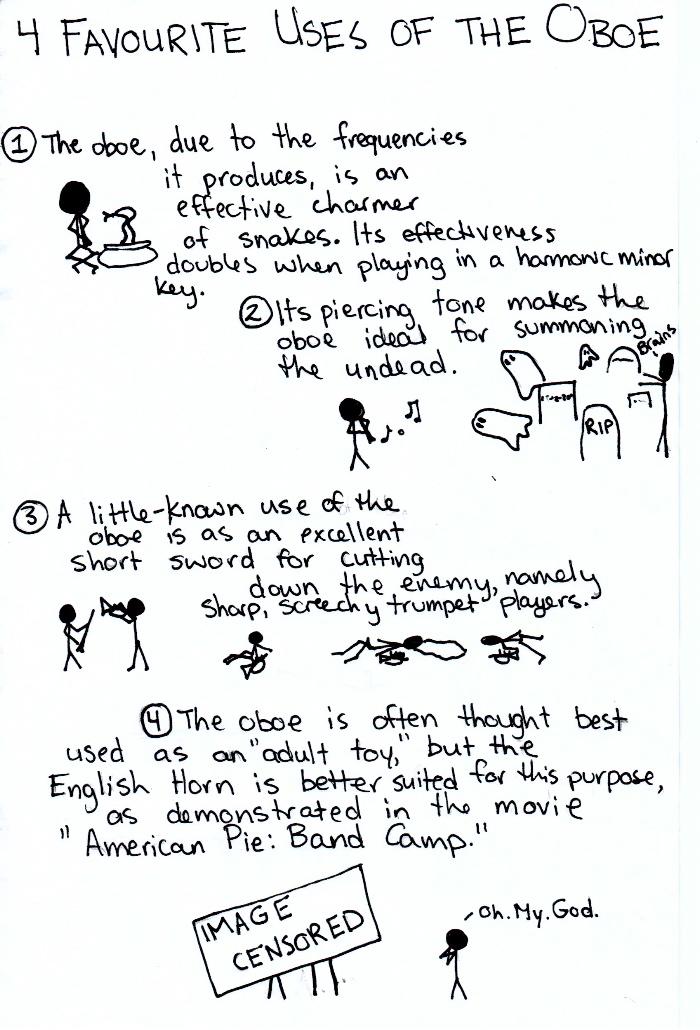 4 FAVOURITE USES OF THE OBOE
① The oboe, due to the frequencies
it produces, is an
effective charmer
of snakes. Its effectiveness
doubles when playing in a harmonic minor
key.
② Its piercing tone makes the
oboe ideal for summoning
the undead.
Brains
RIP
③ A little-known use of the
oboe is as an excellent
short sword for cutting
down the enemy, namely
sharp, screechy trumpet players.
④ The oboe is often thought best
used as an "adult toy," but the
English Horn is better suited for this purpose,
as demonstrated in the movie
"American Pie: Band Camp."
IMAGE
CENSORED
Oh. My. God.